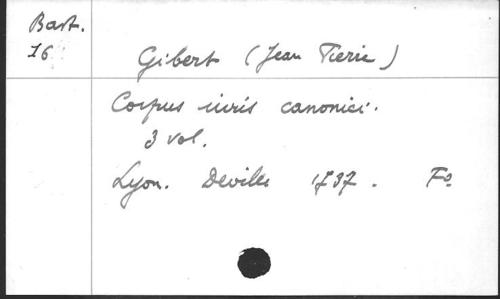 Bast.
16
Gibert (Jean Pierre)
Corpus iuris canonici.
3 vol.
Lyon. Deville 1737. Fo